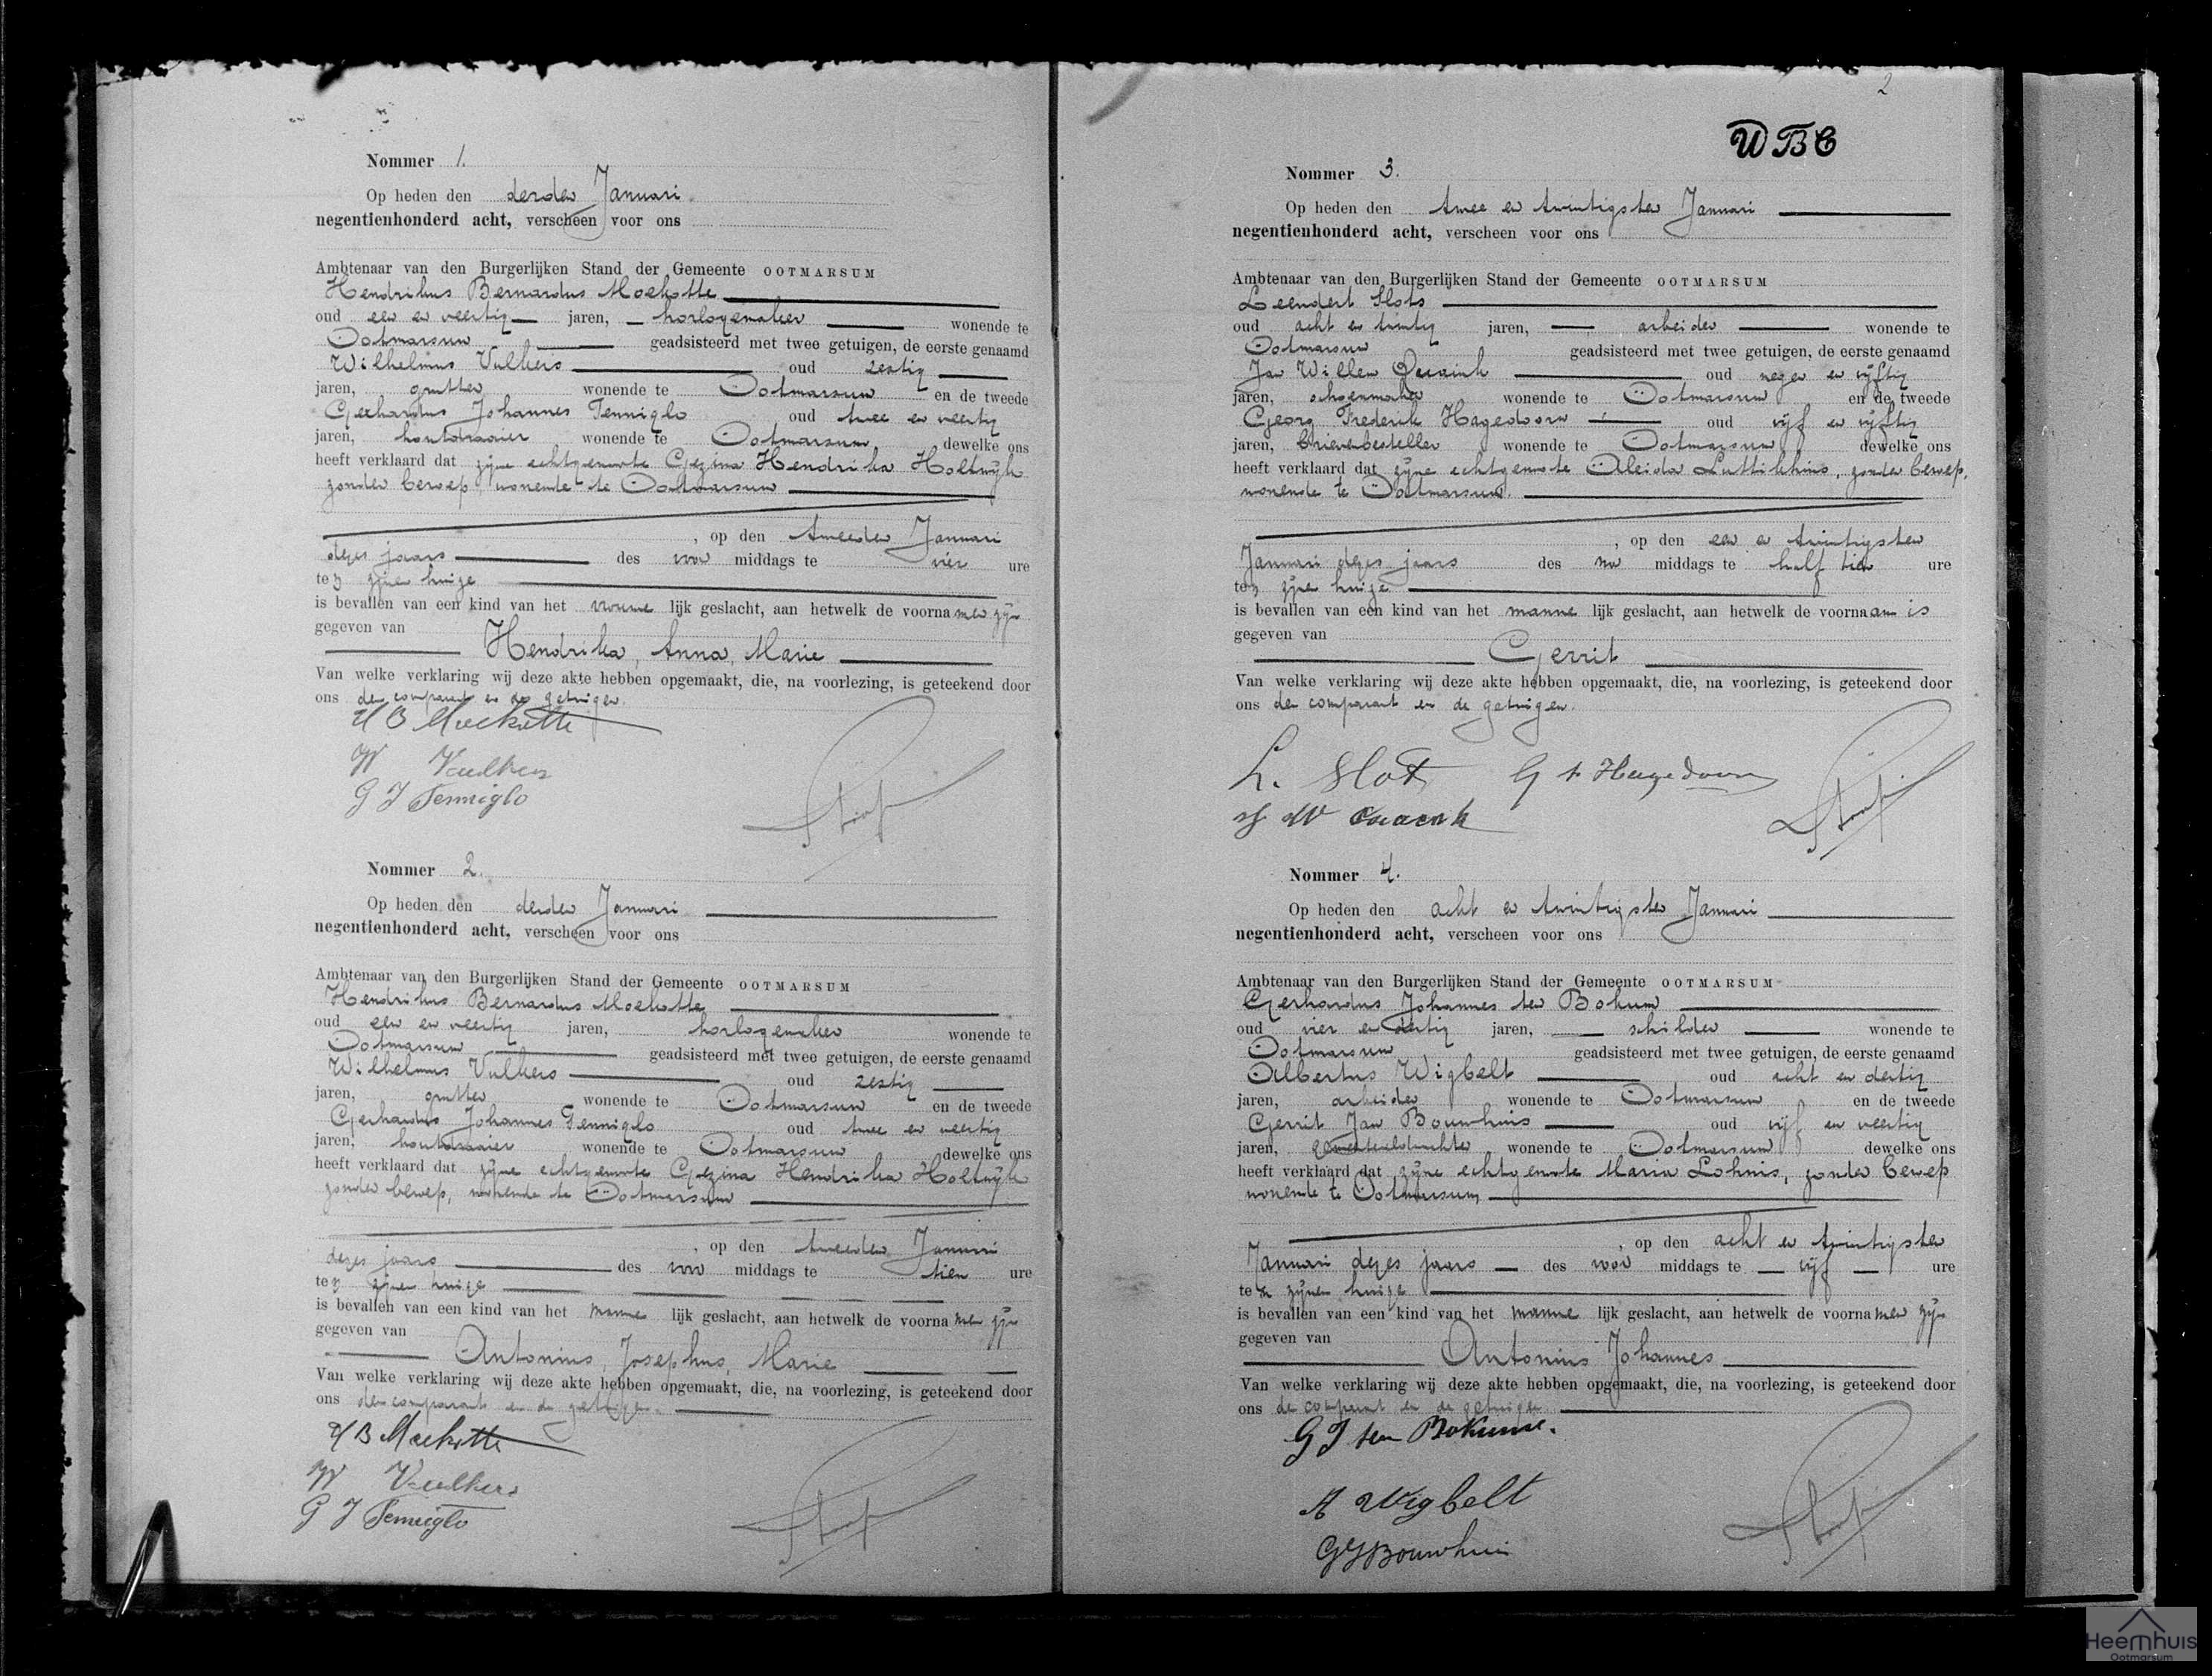 Nommer 1.
Op heden den derden Januari
negentienhonderd acht, verscheen voor ons
Ambtenaar van den Burgerlijken Stand der Gemeente OOTMARSUM
Hendrikus Bernardus Moekotte
oud een en veertig jaren, horlogemaker wonende te
Ootmarsum geadsisteerd met twee getuigen, de eerste genaamd
Wilhelmus Vulkers oud zestig
jaren, grutter wonende te Ootmarsum en de tweede
Gerhardus Johannes Tenniglo oud twee en veertig
jaren, houtdraaier wonende te Ootmarsum dewelke ons
heeft verklaard dat zijne echtgenoote Gezina Hendrika Holtwijk
zonder beroep, wonende te Ootmarsum
, op den tweeden Januari
dezes jaars des voor middags te vier ure
te zijnen huize
is bevallen van een kind van het vrouwe lijk geslacht, aan hetwelk de voorna men zijn
gegeven van
Hendrika, Anna, Marie
Van welke verklaring wij deze akte hebben opgemaakt, die, na voorlezing, is geteekend door
ons den comparant en de getuigen.
H B Moekotte
W Vulkers
G J Tenniglo
Nommer 2.
Op heden den derden Januari
negentienhonderd acht, verscheen voor ons
Ambtenaar van den Burgerlijken Stand der Gemeente OOTMARSUM
Hendrikus Bernardus Moekotte
oud een en veertig jaren, horlogemaker wonende te
Ootmarsum geadsisteerd met twee getuigen, de eerste genaamd
Wilhelmus Vulkers oud zestig
jaren, grutter wonende te Ootmarsum en de tweede
Gerhardus Johannes Tenniglo oud twee en veertig
jaren, houtdraaier wonende te Ootmarsum dewelke ons
heeft verklaard dat zijne echtgenoote Gezina Hendrika Holtwijk
zonder beroep, wonende te Ootmarsum
, op den tweeden Januari
dezes jaars des voor middags te tien ure
te zijnen huize
is bevallen van een kind van het manne lijk geslacht, aan hetwelk de voorna men zijn
gegeven van
Antonius, Josephus, Marie
Van welke verklaring wij deze akte hebben opgemaakt, die, na voorlezing, is geteekend door
ons den comparant en de getuigen.
H B Moekotte
W Vulkers
G J Tenniglo
2
WBC
Nommer 3.
Op heden den twee en twintigsten Januari
negentienhonderd acht, verscheen voor ons
Ambtenaar van den Burgerlijken Stand der Gemeente OOTMARSUM
Leendert Slots
oud acht en twintig jaren, arbeider wonende te
Ootmarsum geadsisteerd met twee getuigen, de eerste genaamd
Jan Willem oud negen en vijftig
jaren, schoenmaker wonende te Ootmarsum en de tweede
Georg Frederik Hagedoorn oud vijf en vijftig
jaren, brievenbesteller wonende te Ootmarsum dewelke ons
heeft verklaard dat zijne echtgenoote Aleida Luttikhuis, zonder beroep,
wonende te Ootmarsum
, op den een en twintigsten
Januari dezes jaars des na middags te half tien ure
te zijnen huize
is bevallen van een kind van het manne lijk geslacht, aan hetwelk de voorna am is
gegeven van
Gerrit
Van welke verklaring wij deze akte hebben opgemaakt, die, na voorlezing, is geteekend door
ons den comparant en de getuigen.
L. Slot G F Hagedoorn
J W
Nommer 4.
Op heden den acht en twintigsten Januari
negentienhonderd acht, verscheen voor ons
Ambtenaar van den Burgerlijken Stand der Gemeente OOTMARSUM
Gerhardus Johannes ten Bokum
oud vier en dertig jaren, schilder wonende te
Ootmarsum geadsisteerd met twee getuigen, de eerste genaamd
Albertus Wigbelt oud acht en dertig
jaren, arbeider wonende te Ootmarsum en de tweede
Gerrit Jan Bouwhuis oud vijf en veertig
jaren, gemeenteveldwachter wonende te Ootmarsum dewelke ons
heeft verklaard dat zijne echtgenoote Maria Lohuis, zonder beroep
wonende te Ootmarsum
, op den acht en twintigsten
Januari dezes jaars des voor middags te vijf ure
te zijnen huize
is bevallen van een kind van het manne lijk geslacht, aan hetwelk de voorna men zijn
gegeven van
Antonius Johannes
Van welke verklaring wij deze akte hebben opgemaakt, die, na voorlezing, is geteekend door
ons den comparant en de getuigen
G J ten Bokum.
A Wigbelt
GJ Bouwhuis
Heemhuis
Ootmarsum